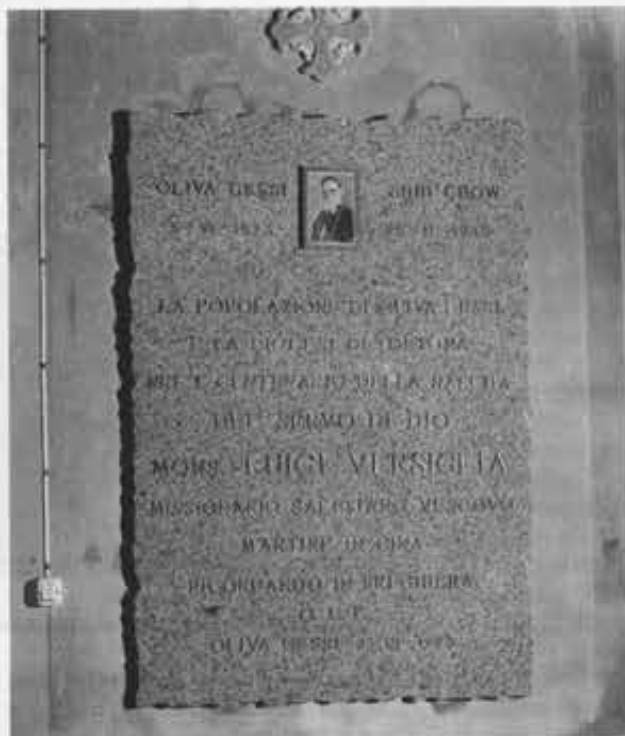 OLIVA GESSI SHIU CHOW
LA POPOLAZIONE DI OLIVA GESSI
E LA DIOCESI DI TORTONA
NEL I CENTENARIO DELLA NASCITA
DEL SERVO DI DIO
MONS. LUIGI VERSIGLIA
MISSIONARIO SALESIANO VESCOVO
MARTIRE IN CINA
RICORDANDO IN PREGHIERA
OLIVA GESSI